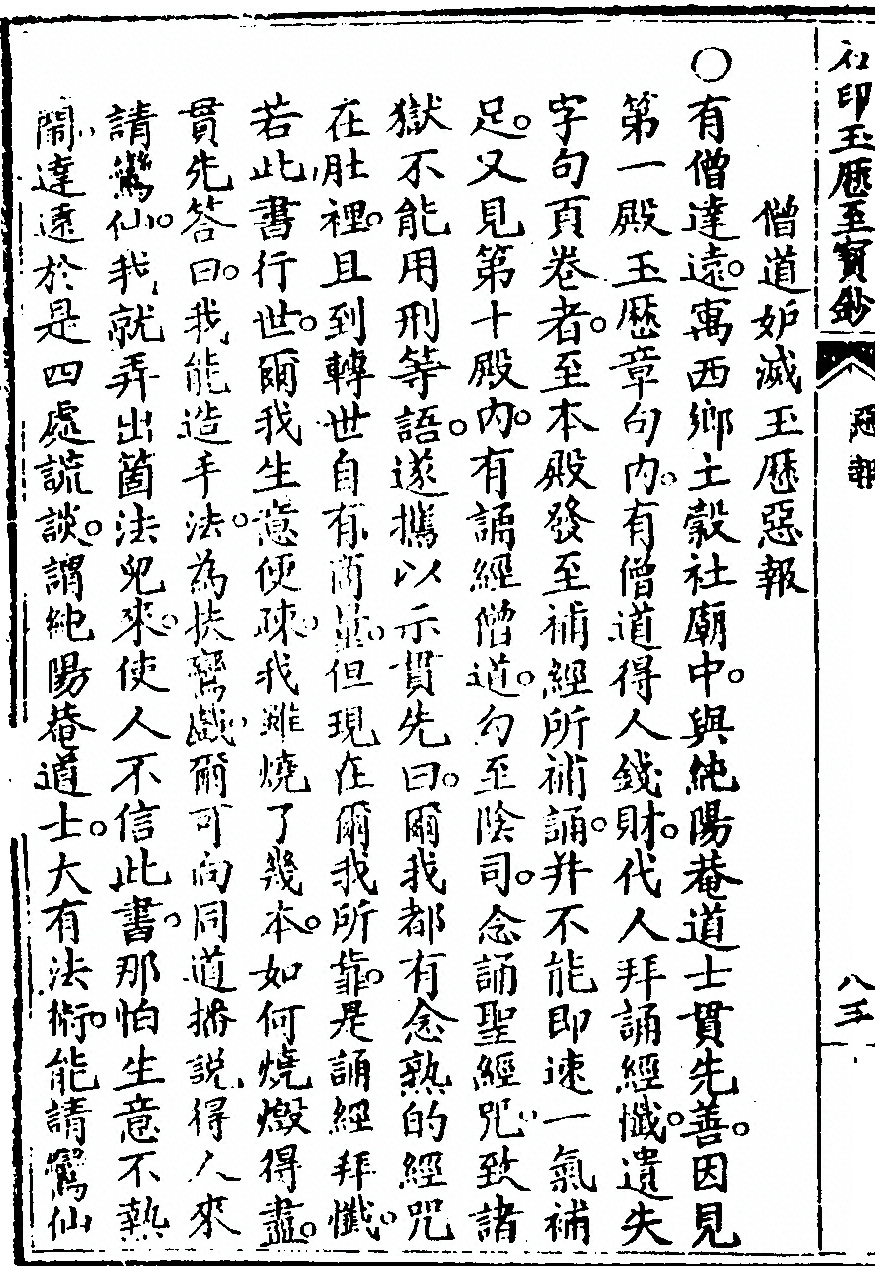 石印玉歷至寶鈔 惡報 八三
僧道妒滅玉歷惡報
○有僧達遠。寓西鄉土穀社廟中。與純陽菴道士貫先善。因見
第一殿玉歷章句內。有僧道得人錢財。代人拜誦經懺。遺失
字句頁卷者。至本殿發至補經所補誦。并不能即速一氣補
足。又見第十殿內。有誦經僧道。勾至陰司。念誦聖經咒。致諸
獄不能用刑等語。遂攜以示貫先曰。爾我都有念熟的經咒
在肚裡。且到轉世自有商量。但現在爾我所靠。是誦經拜懺。
若此書行世。爾我生意便疎。我雖燒了幾本。如何燒燬得盡。
貫先答曰。我能造手法。為扶鸞戲。爾可向同道播說。得人來
請鸞仙。我就弄出箇法兒來。使人不信此書。那怕生意不熱
鬧。達遠於是四處謊談。謂純陽菴道士。大有法術。能請鸞仙